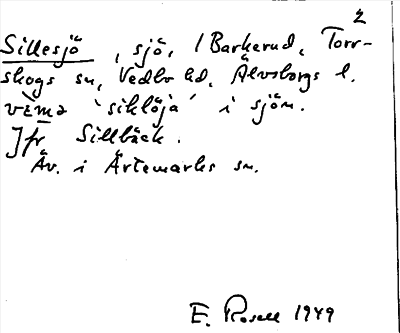 2
Sillesjö, sjö, i Barkerud, Torr-
skogs sn, Vedbo hd, Älvsborgs l.
vèmə 'siklöja' i sjön.
Jfr Sillbäck.
Äv. i Ärtemarks sn.
E. Rosell 1949